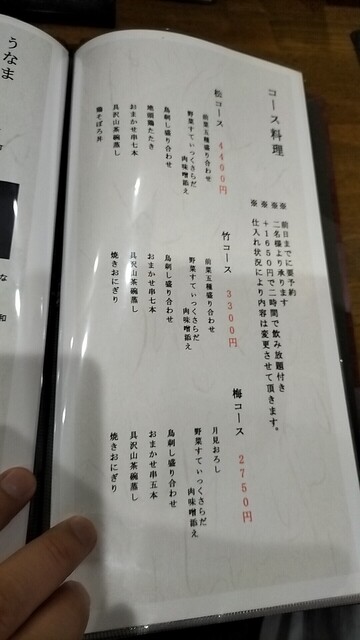 コース料理
※前日までに要予約
※二名様より承ります
※+1650円で二時間で飲み放題付き
※仕入れ状況により内容は変更させて頂きます。
松コース 4400円
前菜五種盛り合わせ
野菜すてぃっくさらだ
肉味噌添え
鳥刺し盛り合わせ
地頭鶏たたき
おまかせ串七本
具沢山茶碗蒸し
鶏そぼろ丼
竹コース 3300円
前菜五種盛り合わせ
野菜すてぃっくさらだ
肉味噌添え
鳥刺し盛り合わせ
おまかせ串七本
具沢山茶碗蒸し
焼きおにぎり
梅コース 2750円
月見おろし
野菜すてぃっくさらだ
肉味噌添え
鳥刺し盛り合わせ
おまかせ串五本
具沢山茶碗蒸し
焼きおにぎり
うなま